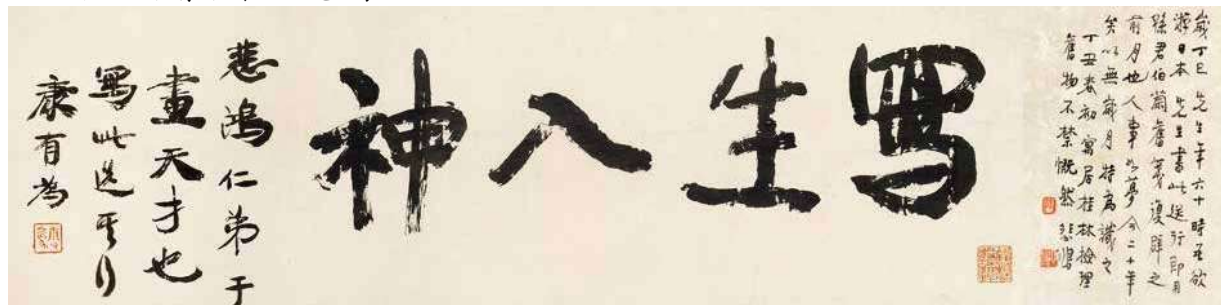 歲丁巳先生年六十時吾欲
游日本先生書此送行即用
孫君伯蘭舊箋復辟之
前月也人事如夢今二十年
矣以無歲月特為識之
丁丑春初寓居桂林檢理
舊物不禁慨然 悲鴻
寫生入神
悲鴻仁弟于
畫天才也
寫此送其行
康有為